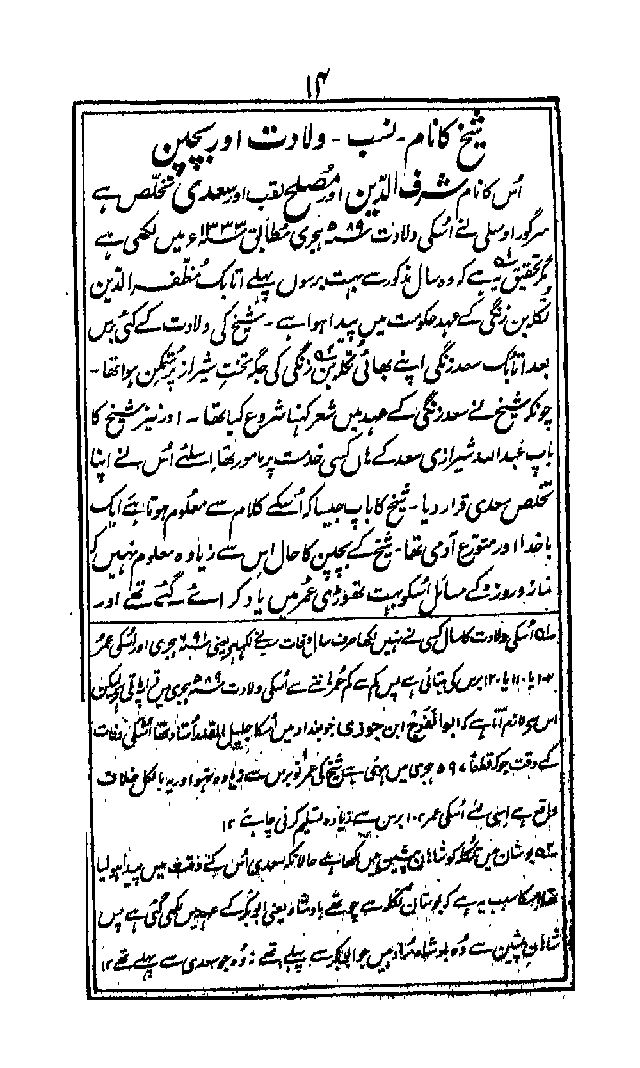 ۱۴
شیخ کا نام - نسب - ولادت اور بچپن
اُس کا نام شرف الدین اور مُصلح لقب اور سعدی تخلّص ہے
سرگور اوسلی نے اُسکی ولادت ۵۸۹ ہجری مطابق ۱۳۳۳ء میں لکھی ہے
مگر تحقیق یہ ہے کہ وہ سال مذکور سے بہت برسوں پہلے اتابک مُظفّر الدین
تکلہ بن زنگی کے عہد حکومت میں پیدا ہوا ہے - شیخ کی ولادت کے کئی برس
بعد اتابک سعد زنگی اپنے بھائی تکلہ بن زنگی کی جگہ تختِ شیراز پر متمکن ہوا تھا -
چونکہ شیخ نے سعد زنگی کے عہد میں شعر کہنا شروع کیا تھا - اور نیز شیخ کا
باپ عبداللہ شیرازی سعد کے ہاں کسی خدمت پر مامور تھا اسلئے اُس نے اپنا
تخلص سعدی قرار دیا - شیخ کا باپ جیسا کہ اُسکے کلام سے معلوم ہوتا ہے ایک
باخدا اور متورع آدمی تھا - شیخ کے بچپن کا حال اس سے زیادہ معلوم نہیں کہ
نماز و روزہ کے مسائل اُسکو بہت تھوڑی عُمر میں یاد کرائے گئے تھے اور
ؔ۱ اُسکی ولادت کا سال کسی نے نہیں لکھا صرف سال وفات سب نے لکھا ہے یعنی ۶۹۱ ہجری اور اُسکی عمر
۱۰۲ یا ۱۱۰ یا ۱۲۰ برس کی بتائی ہے پس کم سے کم عمر ماننے سے اُسکی ولادت ۵۸۹ ہجری میں قرار پاتی ہے لیکن
اس سے لازم آتا ہے کہ ابوالفرح ابن جوزی جو بغداد میں اُسکا جلیل القدر اُستاد تھا اُسکی وفات
کے وقت جو کہ قطعاً ۵۹۷ ہجری میں ہوئی ہے شیخ کی عمر نو برس سے زیادہ نہ ہو اور یہ بالکل خلاف
واقع ہے اسی لئے اُسکی عمر ۱۰۲ برس سے زیادہ تسلیم کرنی چاہیے ۱۲
ؔ۲ بوستان میں تکلہ کو شاہان پیشین میں لکھا ہے حالانکہ سعدی اُس کے وقت میں پیدا ہو لیا
تھا اسکا سبب یہ ہے کہ بوستان تکلہ سے چوتھے بادشاہ یعنی ابوبکر کے عہد میں لکھی گئی ہے پس
شاہان پیشین سے وہ بادشاہ مُراد ہیں جو ابوبکر سے پہلے تھے نہ وہ جو سعدی سے پہلے تھے ۱۲